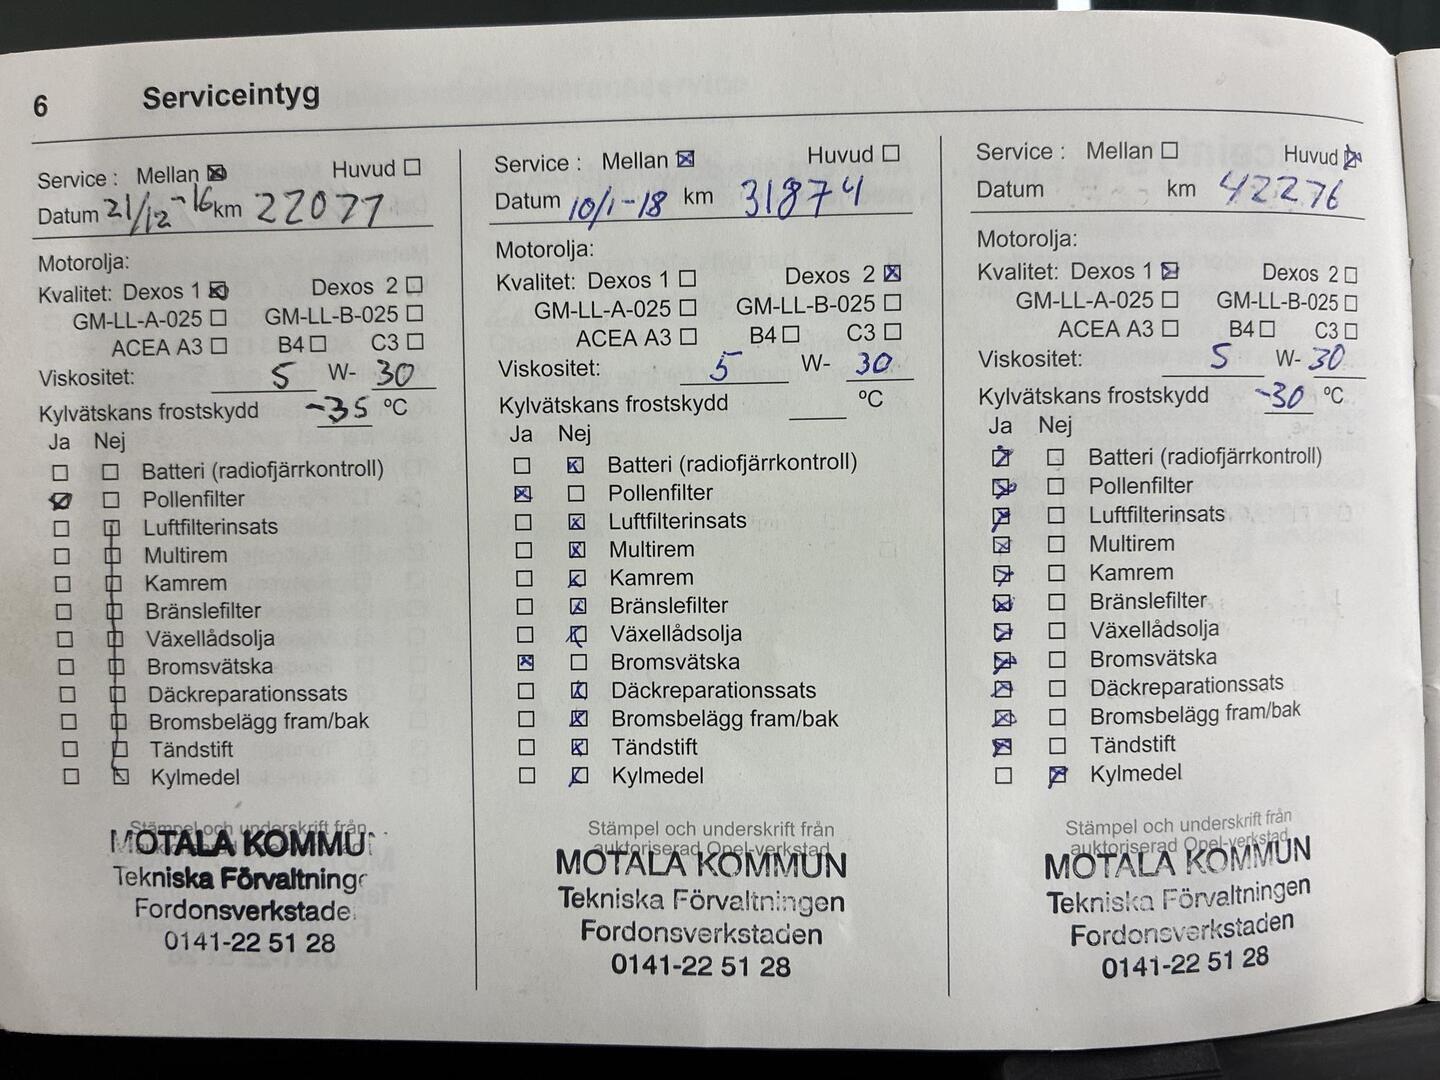 6 Serviceintyg
Service : Mellan ☒ Huvud ☐
Datum 21/12-16 km 22027
Motorolja:
Kvalitet: Dexos 1 ☒ Dexos 2 ☐
GM-LL-A-025 ☐ GM-LL-B-025 ☐
ACEA A3 ☐ B4 ☐ C3 ☐
Viskositet: 5 W- 30
Kylvätskans frostskydd -35 °C
Ja Nej
☐ ☐ Batteri (radiofjärrkontroll)
☒ ☐ Pollenfilter
☐ ☐ Luftfilterinsats
☐ ☐ Multirem
☐ ☐ Kamrem
☐ ☐ Bränslefilter
☐ ☐ Växellådsolja
☐ ☐ Bromsvätska
☐ ☐ Däckreparationssats
☐ ☐ Bromsbelägg fram/bak
☐ ☐ Tändstift
☐ ☒ Kylmedel
Stämpel och underskrift från
MOTALA KOMMU
Tekniska Förvaltninge
Fordonsverkstade
0141-22 51 28
Service : Mellan ☒ Huvud ☐
Datum 10/1-18 km 31874
Motorolja:
Kvalitet: Dexos 1 ☐ Dexos 2 ☒
GM-LL-A-025 ☐ GM-LL-B-025 ☐
ACEA A3 ☐ B4 ☐ C3 ☐
Viskositet: 5 W- 30
Kylvätskans frostskydd °C
Ja Nej
☐ ☒ Batteri (radiofjärrkontroll)
☒ ☐ Pollenfilter
☐ ☒ Luftfilterinsats
☐ ☒ Multirem
☐ ☒ Kamrem
☐ ☒ Bränslefilter
☐ ☒ Växellådsolja
☒ ☐ Bromsvätska
☐ ☒ Däckreparationssats
☐ ☒ Bromsbelägg fram/bak
☐ ☒ Tändstift
☐ ☒ Kylmedel
Stämpel och underskrift från
auktoriserad Opel-verkstad
MOTALA KOMMUN
Tekniska Förvaltningen
Fordonsverkstaden
0141-22 51 28
Service : Mellan ☐ Huvud ☒
Datum km 42276
Motorolja:
Kvalitet: Dexos 1 ☒ Dexos 2 ☐
GM-LL-A-025 ☐ GM-LL-B-025 ☐
ACEA A3 ☐ B4 ☐ C3 ☐
Viskositet: 5 W- 30
Kylvätskans frostskydd -30 °C
Ja Nej
☒ ☐ Batteri (radiofjärrkontroll)
☒ ☐ Pollenfilter
☒ ☐ Luftfilterinsats
☒ ☐ Multirem
☒ ☐ Kamrem
☒ ☐ Bränslefilter
☒ ☐ Växellådsolja
☒ ☐ Bromsvätska
☒ ☐ Däckreparationssats
☒ ☐ Bromsbelägg fram/bak
☒ ☐ Tändstift
☐ ☒ Kylmedel
Stämpel och underskrift från
auktoriserad Opel-verkstad
MOTALA KOMMUN
Tekniska Förvaltningen
Fordonsverkstaden
0141-22 51 28